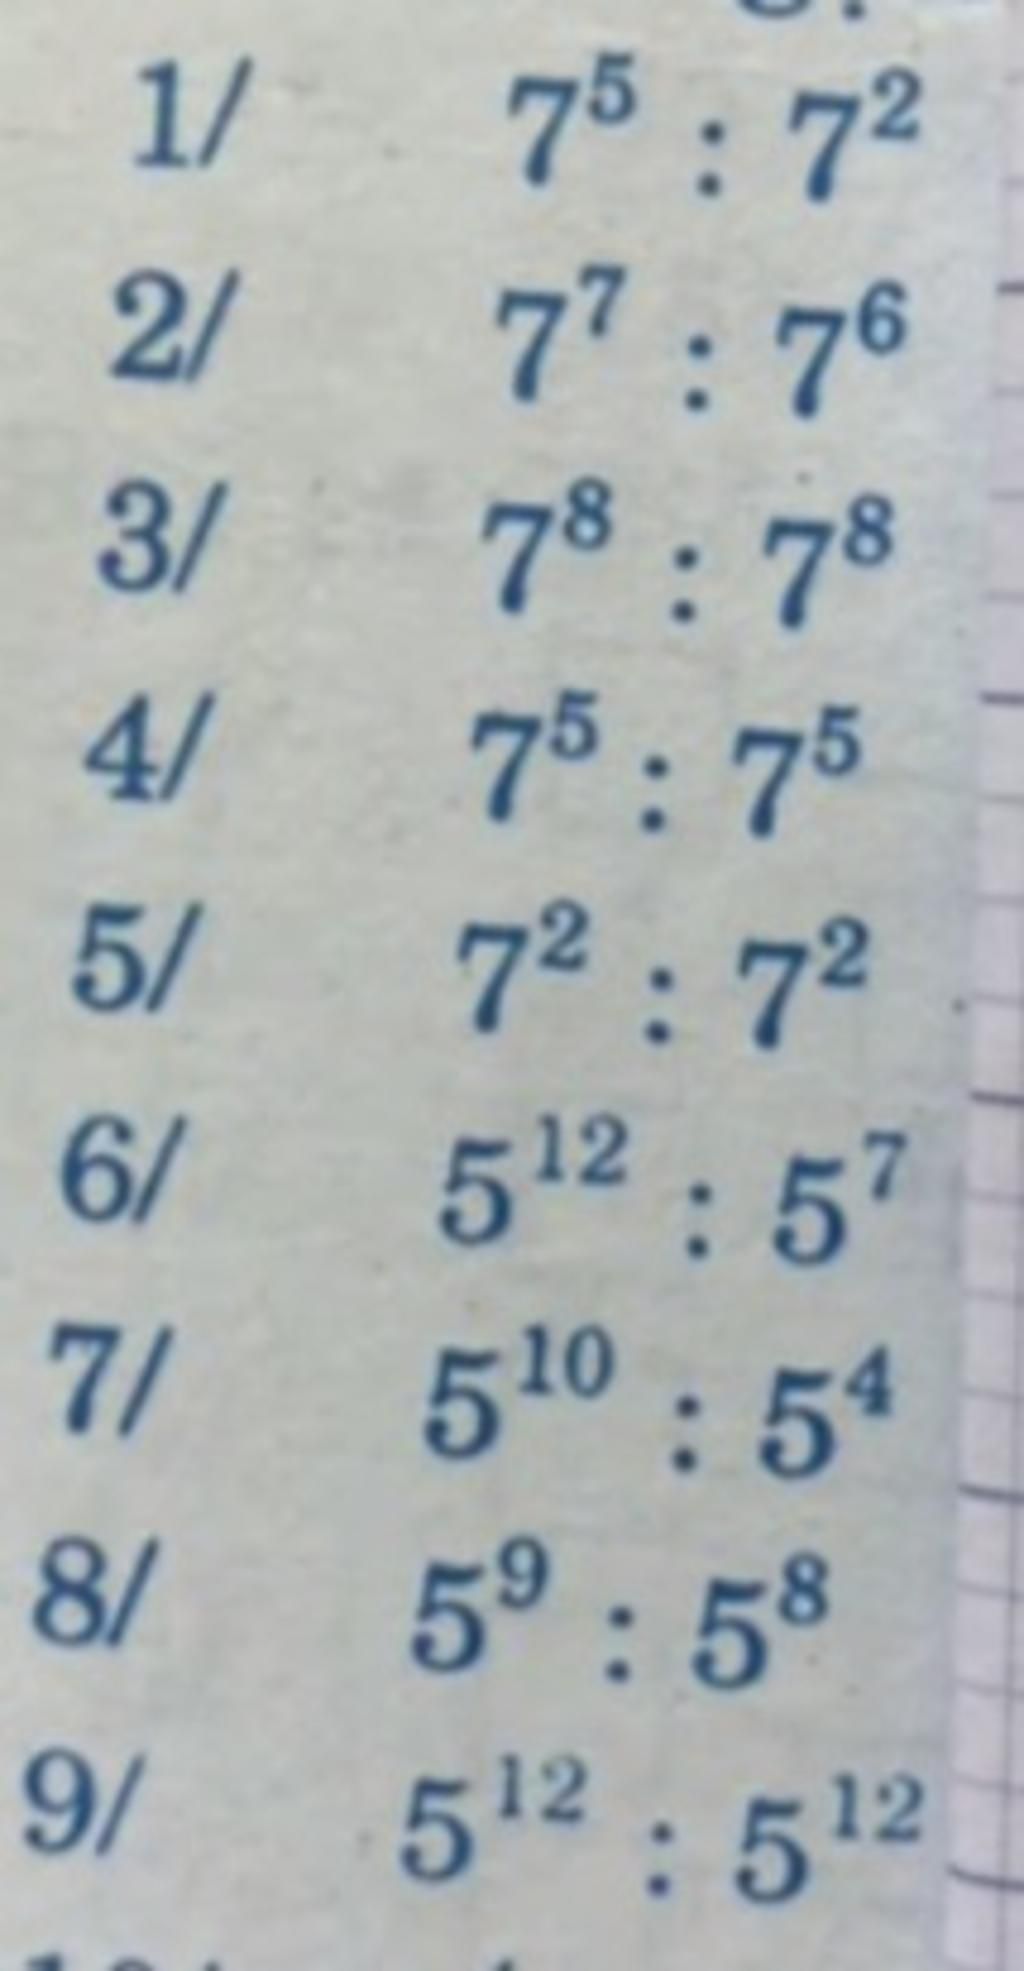 1/ 7⁵ : 7²
2/ 7⁷ : 7⁶
3/ 7⁸ : 7⁸
4/ 7⁵ : 7⁵
5/ 7² : 7²
6/ 5¹² : 5⁷
7/ 5¹⁰ : 5⁴
8/ 5⁹ : 5⁸
9/ 5¹² : 5¹²